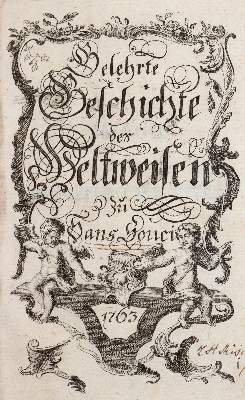 Gelehrte
Geschichte
der
Weltweisen
Zu
Sans Souci
1763